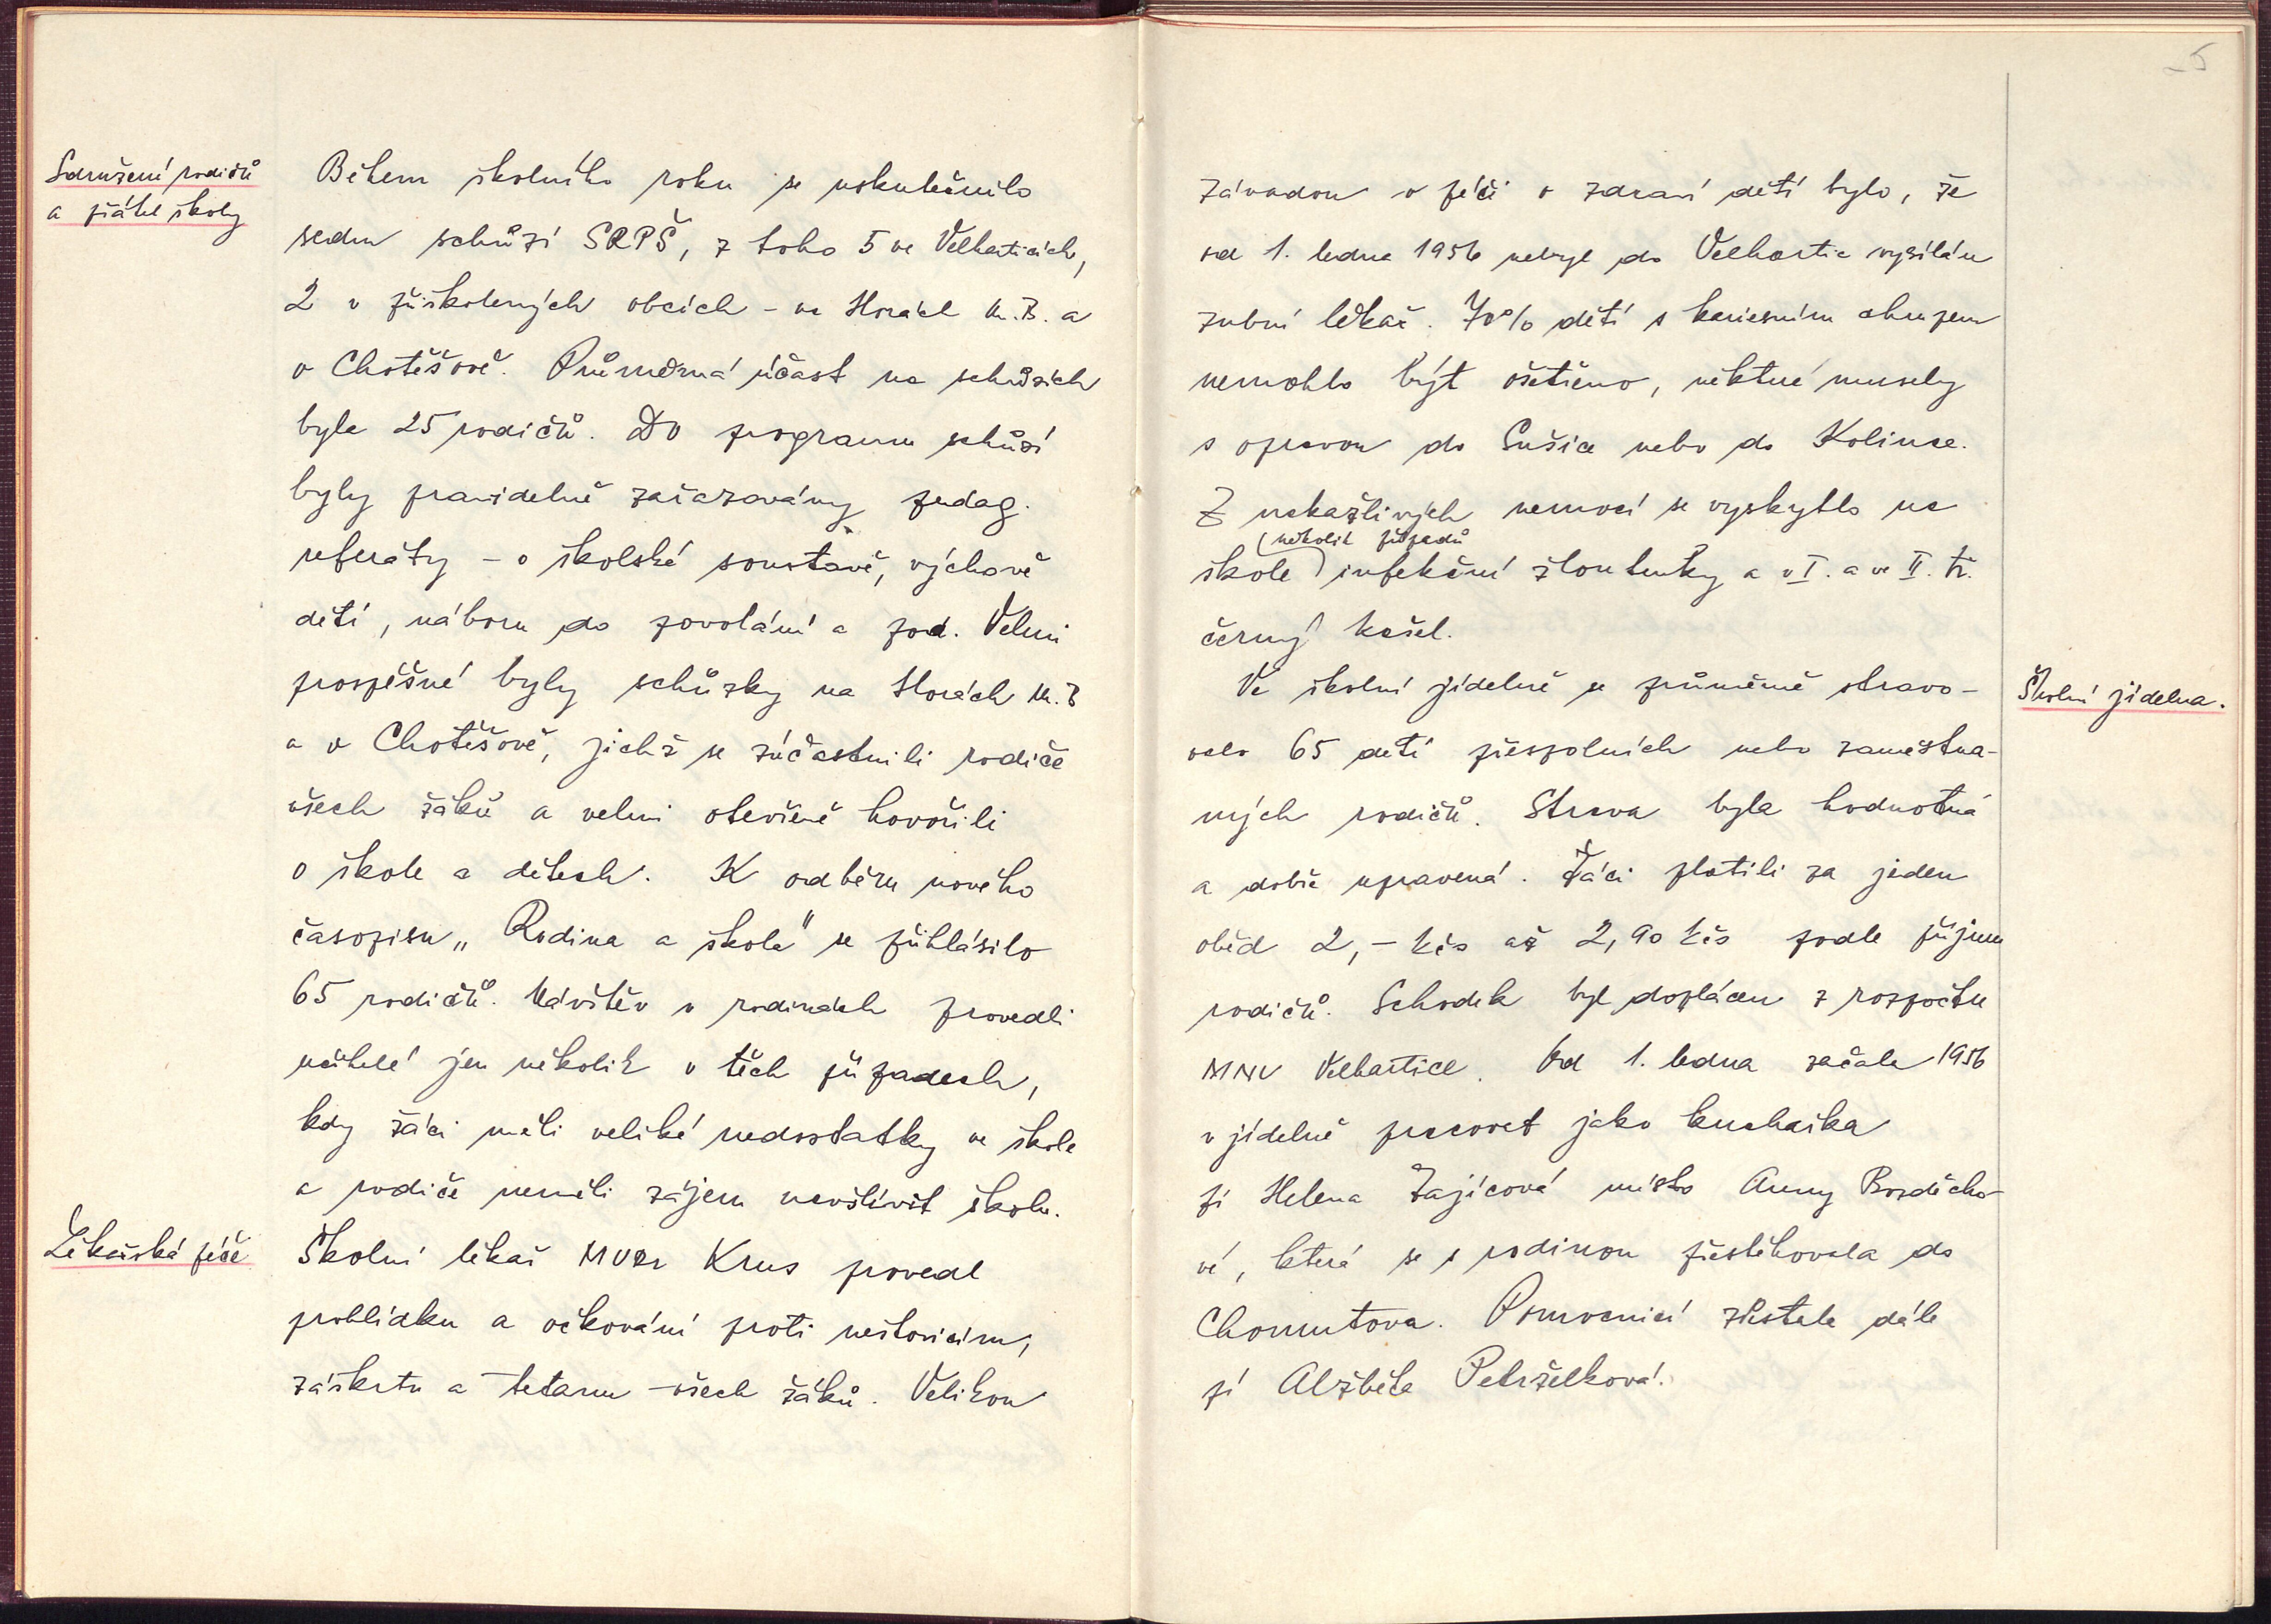 Sdružení rodičů
a přátel školy
Během školního roku se uskutečnilo
sedm schůzí SRPŠ, z toho 5 ve Velharticích,
2 v přiškolených obcích – na Horách M. B. a
v Chotěšově. Průměrná účast na schůzích
byla 25 rodičů. Do programu schůzí
byly pravidelně zařazovány pedag.
referáty – o školské soustavě, výchově
dětí, náboru do povolání a pod. Velmi
prospěšné byly schůzky na Horách M. B
a v Chotěšově, jichž se zúčastnili rodiče
všech žáků a velmi otevřeně hovořili
o škole a dětech. K odběru nového
časopisu „Rodina a škola" se přihlásilo
65 rodičů. Návštěv v rodinách provedli
učitelé jen několik v těch případech,
kdy žáci měli veliké nedostatky ve škole
a rodiče neměli zájem navštívit školu.
Lékařská péče
Školní lékař MUDr Krus provedl
prohlídku a očkování proti neštovicím,
záškrtu a tetanu všech žáků. Velikou
5
závadou v péči o zdraví dětí bylo, že
od 1. ledna 1956 nebyl do Velhartic vysílán
zubní lékař. 70% dětí s kariesním chrupem
nemohlo být ošetřeno, některé musely
s opravou do Sušice nebo do Kolince.
Z nakažlivých nemocí se vyskytlo na
(několik případů
škole) infekční žloutenky a v I. a ve II. tř.
černý kašel.
Školní jídelna.
Ve školní jídelně se průměrně stravo-
valo 65 dětí přespolních nebo zaměstna-
ných rodičů. Strava byla hodnotná
a dobře upravená. Žáci platili za jeden
oběd 2,– Kčs až 2,90 Kčs podle příjmu
rodičů. Schodek byl doplácen z rozpočtu
MNV Velhartice. Od 1. ledna začala 1956
v jídelně pracovat jako kuchařka
pí Helena Zajícová místo Anny Bozděcho-
vé, která se s rodinou přestěhovala do
Chomutova. Pomocnicí zůstala dále
pí Alžběta Petrželková.